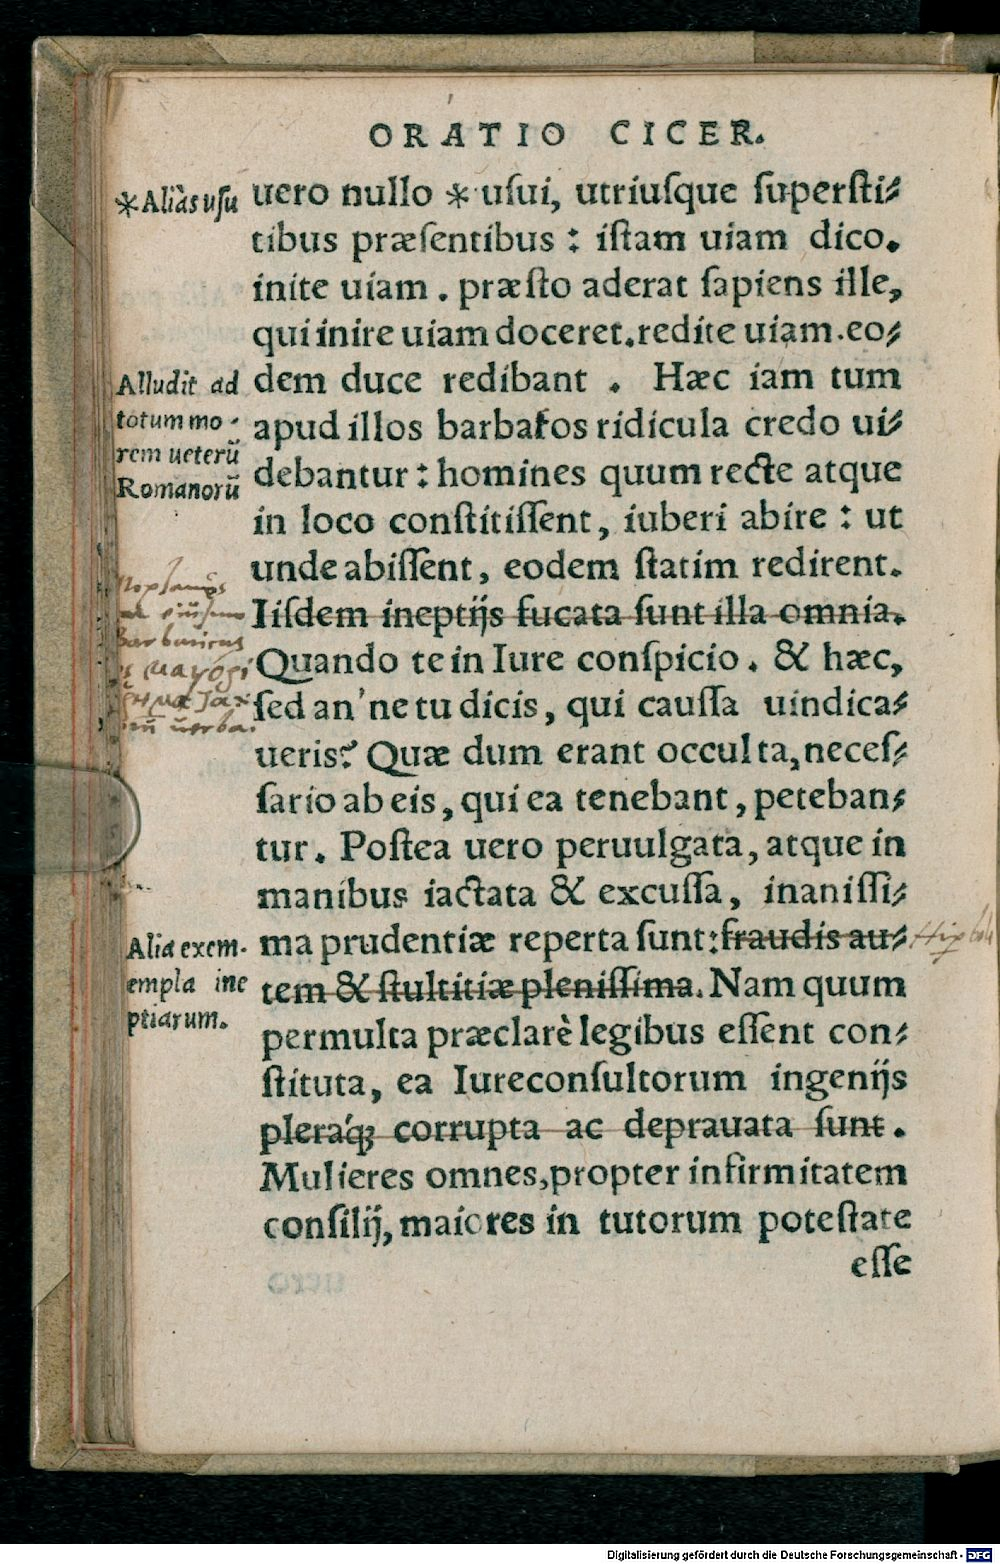 ORATIO CICER.
*Aliàs usu
uero nullo * usui, utriusque supersti⸗
tibus præsentibus : istam uiam dico.
inite uiam . præsto aderat sapiens ille,
qui inire uiam doceret. redite uiam. eo⸗
Alludit ad
totum mo⸗
rem ueterū
Romanorū
dem duce redibant . Hæc iam tum
apud illos barbatos ridicula credo ui⸗
debantur : homines quum recte atque
in loco constitissent, iuberi abire : ut
unde abissent, eodem statim redirent.
Iisdem ineptijs fucata sunt illa omnia.
Quando te in Iure conspicio . & hæc,
sed an' ne tu dicis, qui caussa uindica⸗
ueris? Quæ dum erant occulta, neces⸗
sario ab eis, qui ea tenebant, peteban⸗
tur. Postea uero peruulgata, atque in
manibus iactata & excussa, inanissi⸗
Alia exem⸗
empla ine
ptiarum.
ma prudentiæ reperta sunt: fraudis au⸗
tem & stultitiæ plenissima. Nam quum
permulta præclarè legibus essent con⸗
stituta, ea Iureconsultorum ingenijs
pleraq́ꝫ corrupta ac deprauata sunt .
Mulieres omnes, propter infirmitatem
consilij, maiores in tutorum potestate
esse
Digitalisierung gefördert durch die Deutsche Forschungsgemeinschaft - DFG